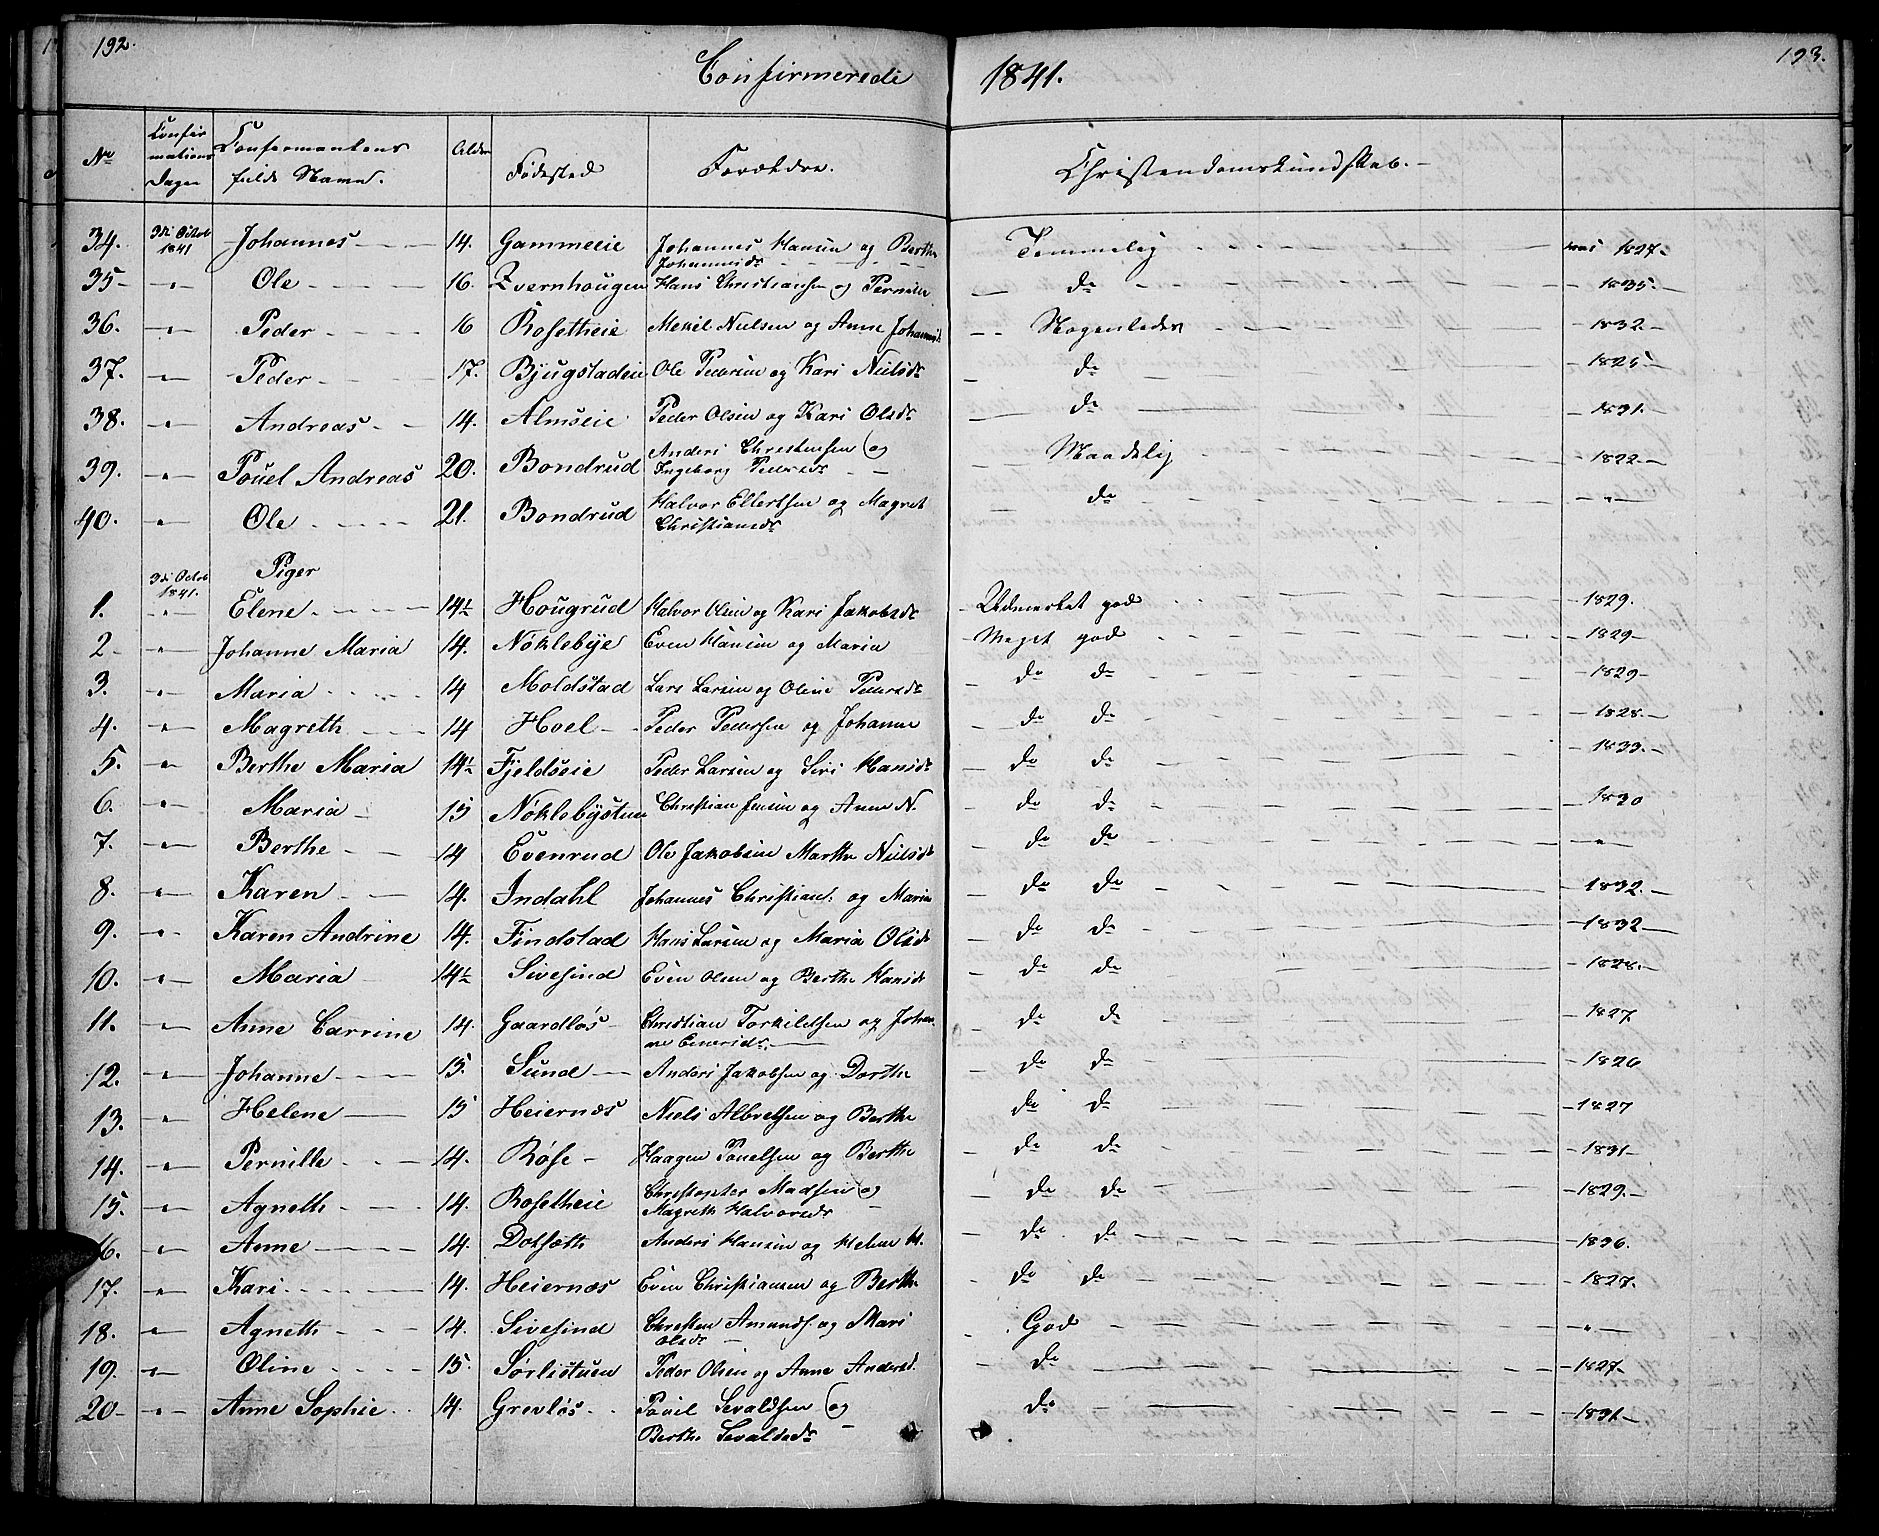 192.
Confirmerede
1841.
193.
No
Confir
mations
Dagen
Confirmantens
fulde Navne.
Alder
Fødested
Forældre.
Christendomskundskab. —
34. 3die Octob 1841 Johannes - - — 14. Gammeeie Johannes Hansen og Berthe Johannesdr Temmelig 1827 -
35 - " — Ole 16. Hans Christiansen og Pernille — do 1835 -
36. - " — Peder 16 Rosetheie Mekil Nielsen og Anne Johannesd - - Nogenledes - 1832 -
37. " — Peder 17. Bjugstadeie Ole Pedersen og Kari Nielsdr — do 1825 -
38. - " — Andreas 14. Almseie Peder Olsen og Kari Olsdr do - 1831. -
39. - " — Pouel Andreas 20. Bondrud Anders Christensen og Ingeborg Pedersdr - Maadelig - 1822 -
40. " — Ole 21. Bondrud Halvor Ellertsen og Magret Christiansdr do - " —
Piger
1. 3di Octob 1841. - " — Elene 14½ Hougrud Halvor Olsen og Kari Jakobsdr - Udmerket god - 1829.
2 - " — Johanne Maria 14. Nøklebye Even Hansen og Maria - Meget god - 1829 -
3. " — Maria 14 Moldstad Lars Larsen og Oline Pedersdr - do do - 1829 -
4. " — Magreth 14 Hoel - Peder Pedersen og Johanne - do do - 1828. -
5. " — Berthe Maria 14½ Fjeldseie Peder Larsen og Siri Hansdr - do do - 1833. -
6. " — Maria 15 Nøklebystuen Christian Jensen og Anne N. - do do - 1830
7. " — Berthe 14 Evenrud Ole Jakobsen Marthe Nielsdr - do do - " —
8. " — Karen 14. Indahl Johannes Christians: og Marie - do do - 1832. -
9. " - Karen Andrine 14. Findstad Hans Larsen og Maria Olsdr - do do - 1832 —
10. " — Maria 14½ Sivesind Even Olsen og Berthe Hansdr - do do - 1828. -
11. " — Anne Carrine 14. Gaardløs - Christian Torkildsen og Johanne Einersdr. — - do do - 1827.
12. " — Johanne 15. Sund — Anders Jakobsen og Dorthe - do do - 1826
13. " — Helene — 15 Heiernæs Niels Albretsen og Berthe do do - 1827
14. - " — Pernille 14. Røse - Haagen Pouelsen og Berthe - do do - 1831 -
15. " — Agneth 14. Rosetheie Christopher Madsen og Magreth Halvorsdr - - do do - 1829. -
16. " — Anne 14. Dotsæth Anders Hansen og Helene H. - do do - 1836.
17. " — Kari 14. Heiernæs Even Christiansen og Berthe - do do - 1827.
18. " — Agneth 14. Sivesind Christen Amunds. og Mari Olsdr - God - " —
19. " — Oline 15. Sørlistuen Peder Olsen og Anne Andersd. - do - 1827 -
20 - " — Anne Sophie 14. Grevløs Pouel Sevaldsen og Berthe Sevaldsdr - do - 1831 -